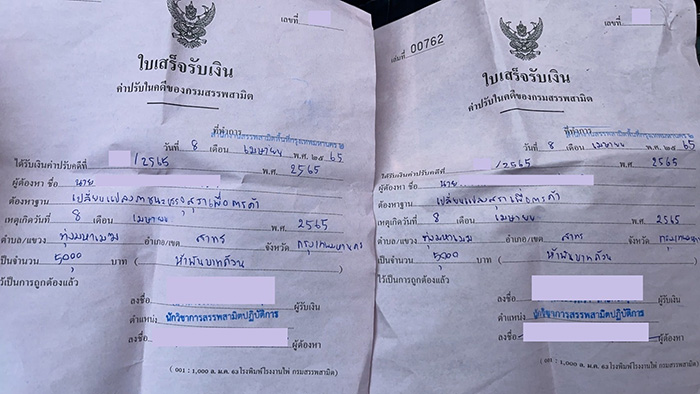 เลขที่
ใบเสร็จรับเงิน
ค่าปรับในคดีของกรมสรรพสามิต
ที่ทำการ
สำนักงานสรรพสามิตพื้นที่กรุงเทพมหานคร ๒
วันที่ 8 เดือน เมษายน พ.ศ. ๒๕ 65
ได้รับเงินค่าปรับคดีที่ /2565 พ.ศ. 2565
ผู้ต้องหา ชื่อ นาย
ต้องหาฐาน เปลี่ยนแปลงภาชนะบรรจุสุราเพื่อการค้า
เหตุเกิดวันที่ 8 เดือน เมษายน พ.ศ. 2565
ตำบล/แขวง ทุ่งมหาเมฆ อำเภอ/เขต สาทร จังหวัด กรุงเทพมหานคร
เป็นจำนวน 5,000 บาท ( ห้าพันบาทถ้วน )
ไว้เป็นการถูกต้องแล้ว
ลงชื่อ ผู้รับเงิน
ตำแหน่ง นักวิชาการสรรพสามิตปฏิบัติการ
ลงชื่อ ผู้ต้องหา
( 001 : 1,000 ล. ม.ค. 63 โรงพิมพ์โรงงานไพ่ กรมสรรพสามิต)
เล่มที่ 00762
เลขที่
ใบเสร็จรับเงิน
ค่าปรับในคดีของกรมสรรพสามิต
ที่ทำการ
สำนักงานสรรพสามิตพื้นที่กรุงเทพมหานคร ๒
วันที่ 8 เดือน เมษายน พ.ศ. ๒๕ 65
ได้รับเงินค่าปรับคดีที่ /2565 พ.ศ. 2565
ผู้ต้องหา ชื่อ นาย
ต้องหาฐาน เปลี่ยนแปลงสุราเพื่อการค้า
เหตุเกิดวันที่ 8 เดือน เมษายน พ.ศ. 2565
ตำบล/แขวง ทุ่งมหาเมฆ อำเภอ/เขต สาทร จังหวัด กรุงเทพมหานคร
เป็นจำนวน 5,000 บาท ( ห้าพันบาทถ้วน )
ไว้เป็นการถูกต้องแล้ว
ลงชื่อ ผู้รับเงิน
ตำแหน่ง นักวิชาการสรรพสามิตปฏิบัติการ
ลงชื่อ ผู้ต้องหา
( 001 : 1,000 ล. ม.ค. 63 โรงพิมพ์โรงงานไพ่ กรมสรรพสามิต)